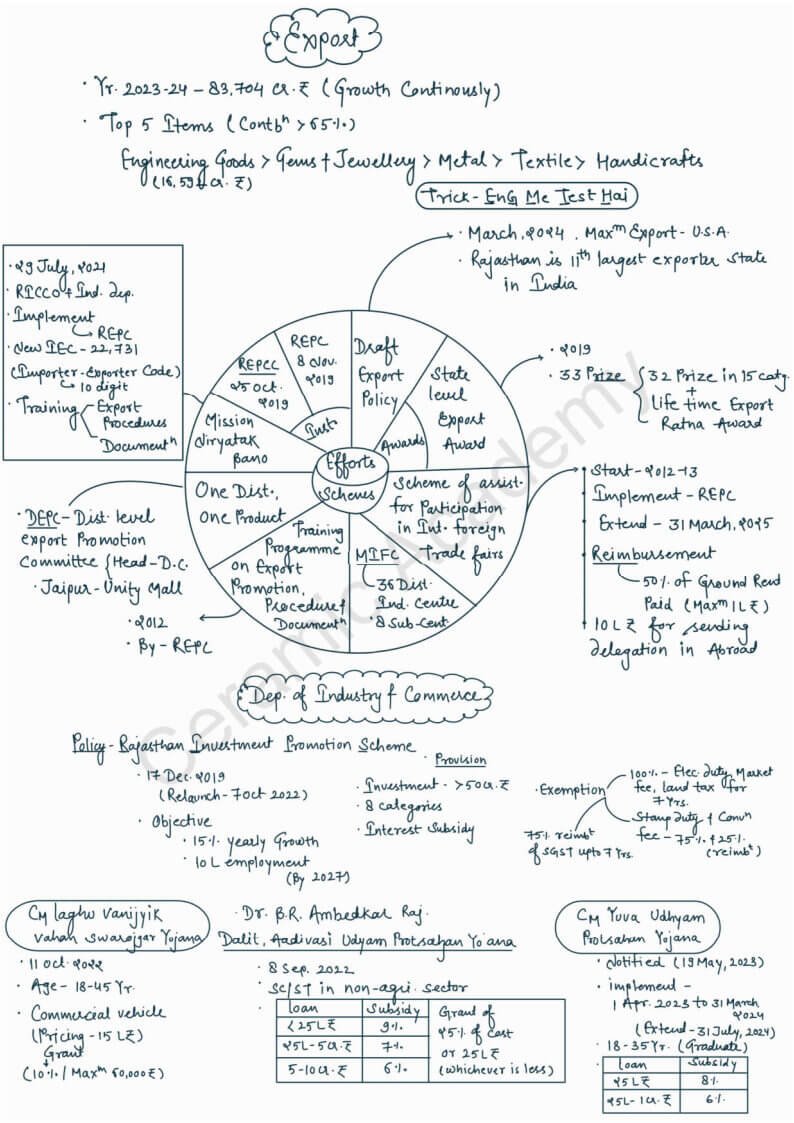 Export
· Yr. 2023-24 – 83,704 cr. ₹ (Growth Continously)
· Top 5 Items (Contbⁿ > 65%)
Engineering Goods > Gems + Jewellery > Metal > Textile > Handicrafts
(16,591 cr. ₹)
Trick - EnG Me Test Hai
· March, 2024 . Maxᵐ Export - U.S.A.
· Rajasthan is 11th largest exporter state
in India
· 29 July, 2021
· RICCO + Ind. dep.
· Implement
↳ REPC
· New IEC - 22,731
(Importer-Exporter Code)
↳ 10 digit
· Training
Export
Procedures
Documentⁿ
REPCC
25 Oct.
2019
REPC
8 Nov.
2019
Inst.
Draft
Export
Policy
State
level
Export
Award
Awards
Mission
Niryatak
Bano
Efforts
Schemes
One Dist.,
One Product
Training
Programme
on Export
Promotion,
Procedure &
Documentⁿ
MIFC
36 Dist.
Ind. Centre
8 Sub-Cent.
Scheme of assist.
for Participation
in Int. foreign
Trade fairs
· 2019
· 33 Prize
32 Prize in 15 catg.
+
Life time Export
Ratna Award
Start - 2012-13
Implement - REPC
Extend - 31 March, 2025
Reimbursement
50% of Ground Rend
Paid (Maxᵐ 1L ₹)
10 L ₹ for sending
delegation in Abroad
· DEPC - Dist. level
export Promotion
Committee {Head - D.C.
· Jaipur - Unity Mall
· 2012
· By - REPC
Ceramic Academy
Dep. of Industry & Commerce
Policy - Rajasthan Investment Promotion Scheme
· 17 Dec. 2019
(Relaunch - 7 Oct 2022)
· Objective
· 15% yearly Growth
· 10 L employment
(By 2027)
· Provision
· Investment - >50 cr. ₹
· 8 categories
· Interest Subsidy
· Exemption
100% - Elec. duty, Market
fee, land tax for
7 Yrs.
Stamp duty & Convⁿ
fee - 75% & 25%
(reimbᵗ)
75% reimbᵗ
of SGST upto 7 Yrs.
CM laghu Vanijyik
Vahan Swarojgar Yojana
· 11 Oct. 2022
· Age - 18-45 Yr.
· Commercial vehicle
(Pricing - 15 L ₹)
Grant
(10% / Maxᵐ 60,000 ₹)
· Dr. B.R. Ambedkar Raj.
Dalit, Aadivasi Udyam Protsahan Yojana
· 8 Sep. 2022
· SC/ST in non-agri. sector
Loan Subsidy
<25L ₹ 9%
25L - 5 cr. ₹ 7%
5-10 cr. ₹ 6%
Grant of
25% of cost
or 25L ₹
(whichever is less)
CM Yuva Udhyam
Protsahan Yojana
· Notified (19 May, 2023)
· implement -
1 Apr. 2023 to 31 March
2024
(Extend - 31 July, 2024)
· 18-35 Yr. (Graduate)
Loan Subsidy
25L ₹ 8%
25L - 1 cr. ₹ 6%